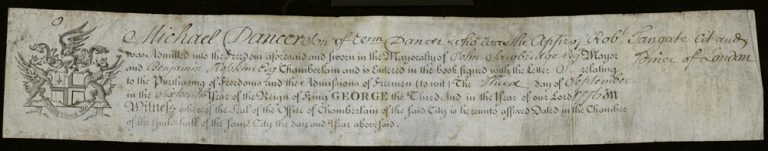 Michael Dancer Son of Jerm. Dancer who was the Appr: of Robt. Tangate Cit and Joiner of London
was Admitted into the Freedom aforesaid and sworn in the Mayoralty of John Sawbridge Esq Mayor
and Benjamin Hopkins Esq Chamberlain and is Entered in the book signed with the Letter relating
to the Purchasing of Freedoms and the Admissions of Freemen (to wit) The Third day of September
in the Sixteenth Year of the Reign of King GEORGE the Third And in the Year of our Lord 1776 In
Witness whereof the Seal of the Office of Chamberlain of the said City is hereunto affixed Dated in the Chamber
of the Guildhall of the same City the day and Year abovesaid.